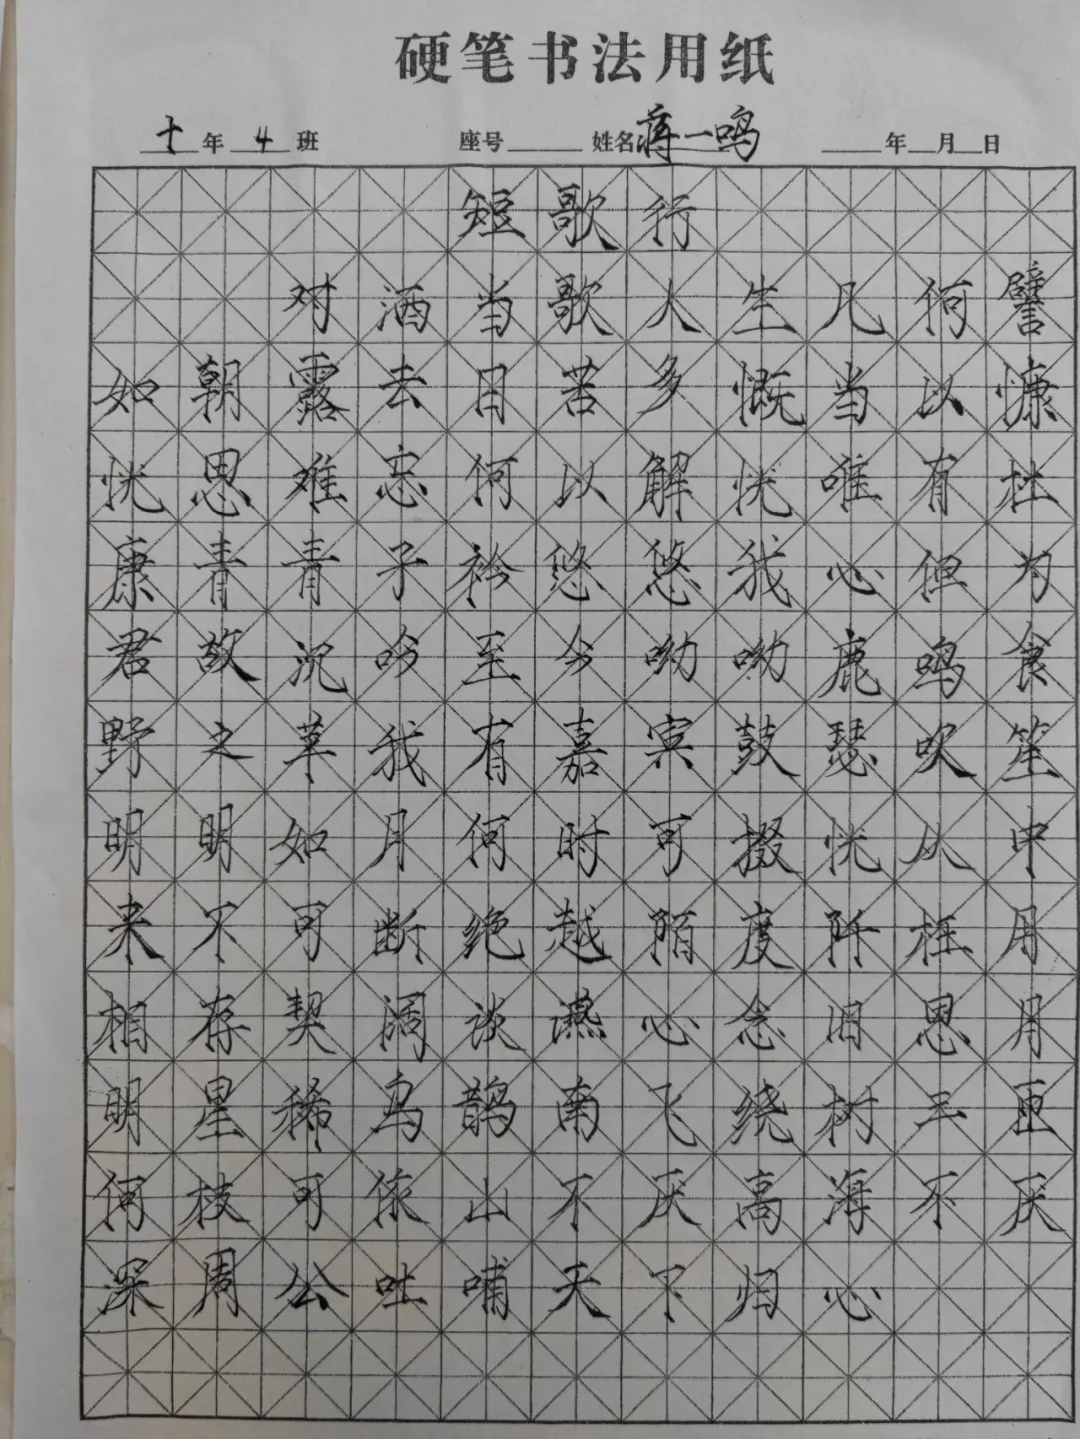 硬笔书法用纸
十年4班 座号 姓名蒋一鸣 年 月 日
短歌行
对酒当歌人生几何譬
如朝露去日苦多慨当以慷
忧思难忘何以解忧唯有杜
康青青子衿悠悠我心但为
君故沉吟至今呦呦鹿鸣食
野之苹我有嘉宾鼓瑟吹笙
明明如月何时可掇忧从中
来不可断绝越陌度阡枉用
相存契阔谈讌心念旧恩月
明星稀乌鹊南飞绕树三匝
何枝可依山不厌高海不厌
深周公吐哺天下归心